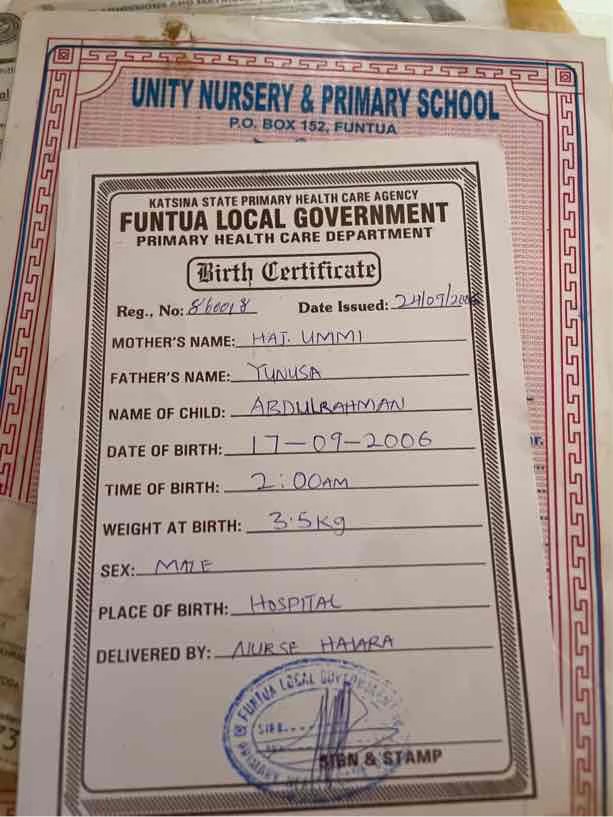 UNITY NURSERY & PRIMARY SCHOOL
P.O. BOX 152, FUNTUA
KATSINA STATE PRIMARY HEALTH CARE AGENCY
FUNTUA LOCAL GOVERNMENT
PRIMARY HEALTH CARE DEPARTMENT
Birth Certificate
Reg., No: 860018 Date Issued: 24/09/2006
MOTHER'S NAME: HAJ. UMMI
FATHER'S NAME: YUNUSA
NAME OF CHILD: ABDULRAHMAN
DATE OF BIRTH: 17-09-2006
TIME OF BIRTH: 2:00AM
WEIGHT AT BIRTH: 3.5kg
SEX: MALE
PLACE OF BIRTH: HOSPITAL
DELIVERED BY: NURSE HAJARA
FUNTUA LOCAL GOVERNMENT
SIGN & STAMP